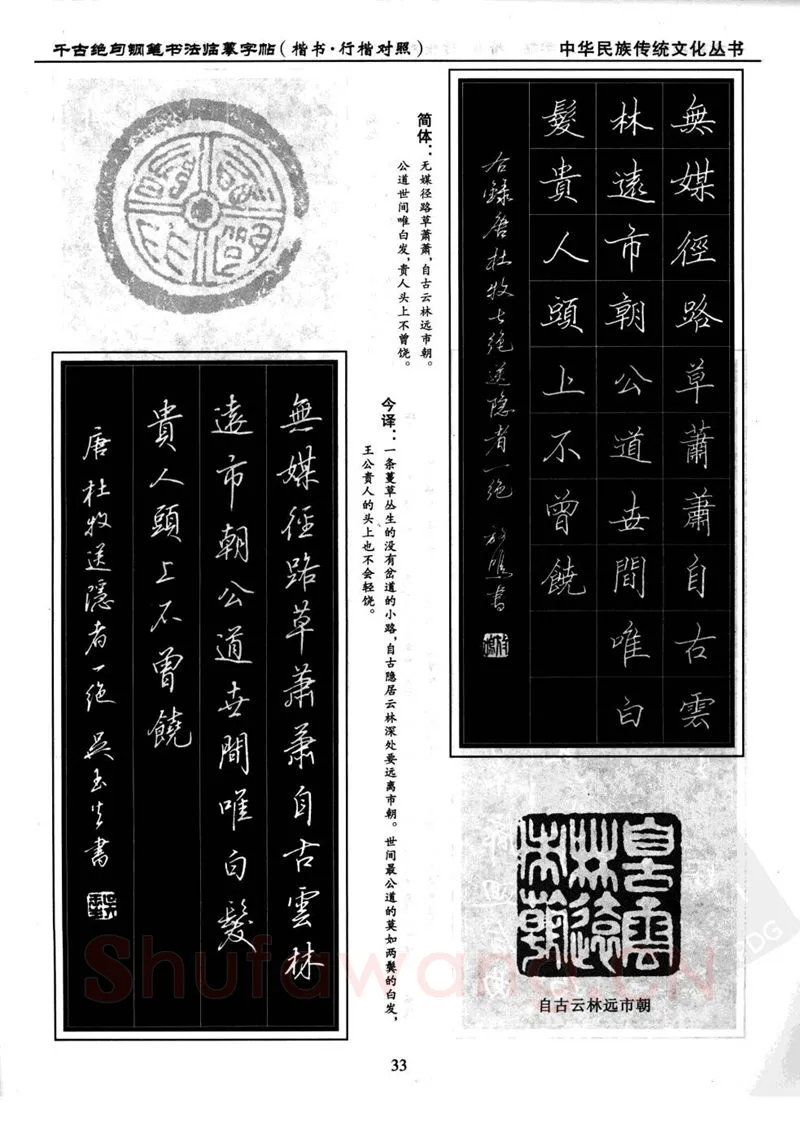 千古绝句钢笔书法临摹字帖（楷书·行楷对照）
中华民族传统文化丛书
無媒徑路草蕭蕭自古雲
林遠市朝公道世間唯白
髮貴人頭上不曾饒
右録唐杜牧七绝送隐者一绝
简体：无媒径路草萧萧，自古云林远市朝。
公道世间唯白发，贵人头上不曾饶。
今译：一条蔓草丛生的没有岔道的小路，自古隐居云林深处要远离市朝。世间最公道的莫如两鬓的白发，
王公贵人的头上也不会轻饶。
無媒徑路草蕭蕭自古雲林
遠市朝公道世間唯白髮
貴人頭上不曾饒
唐杜牧送隱者一绝 吴玉生書
自古雲林遠市朝
自古云林远市朝
33
Shufawang.CN